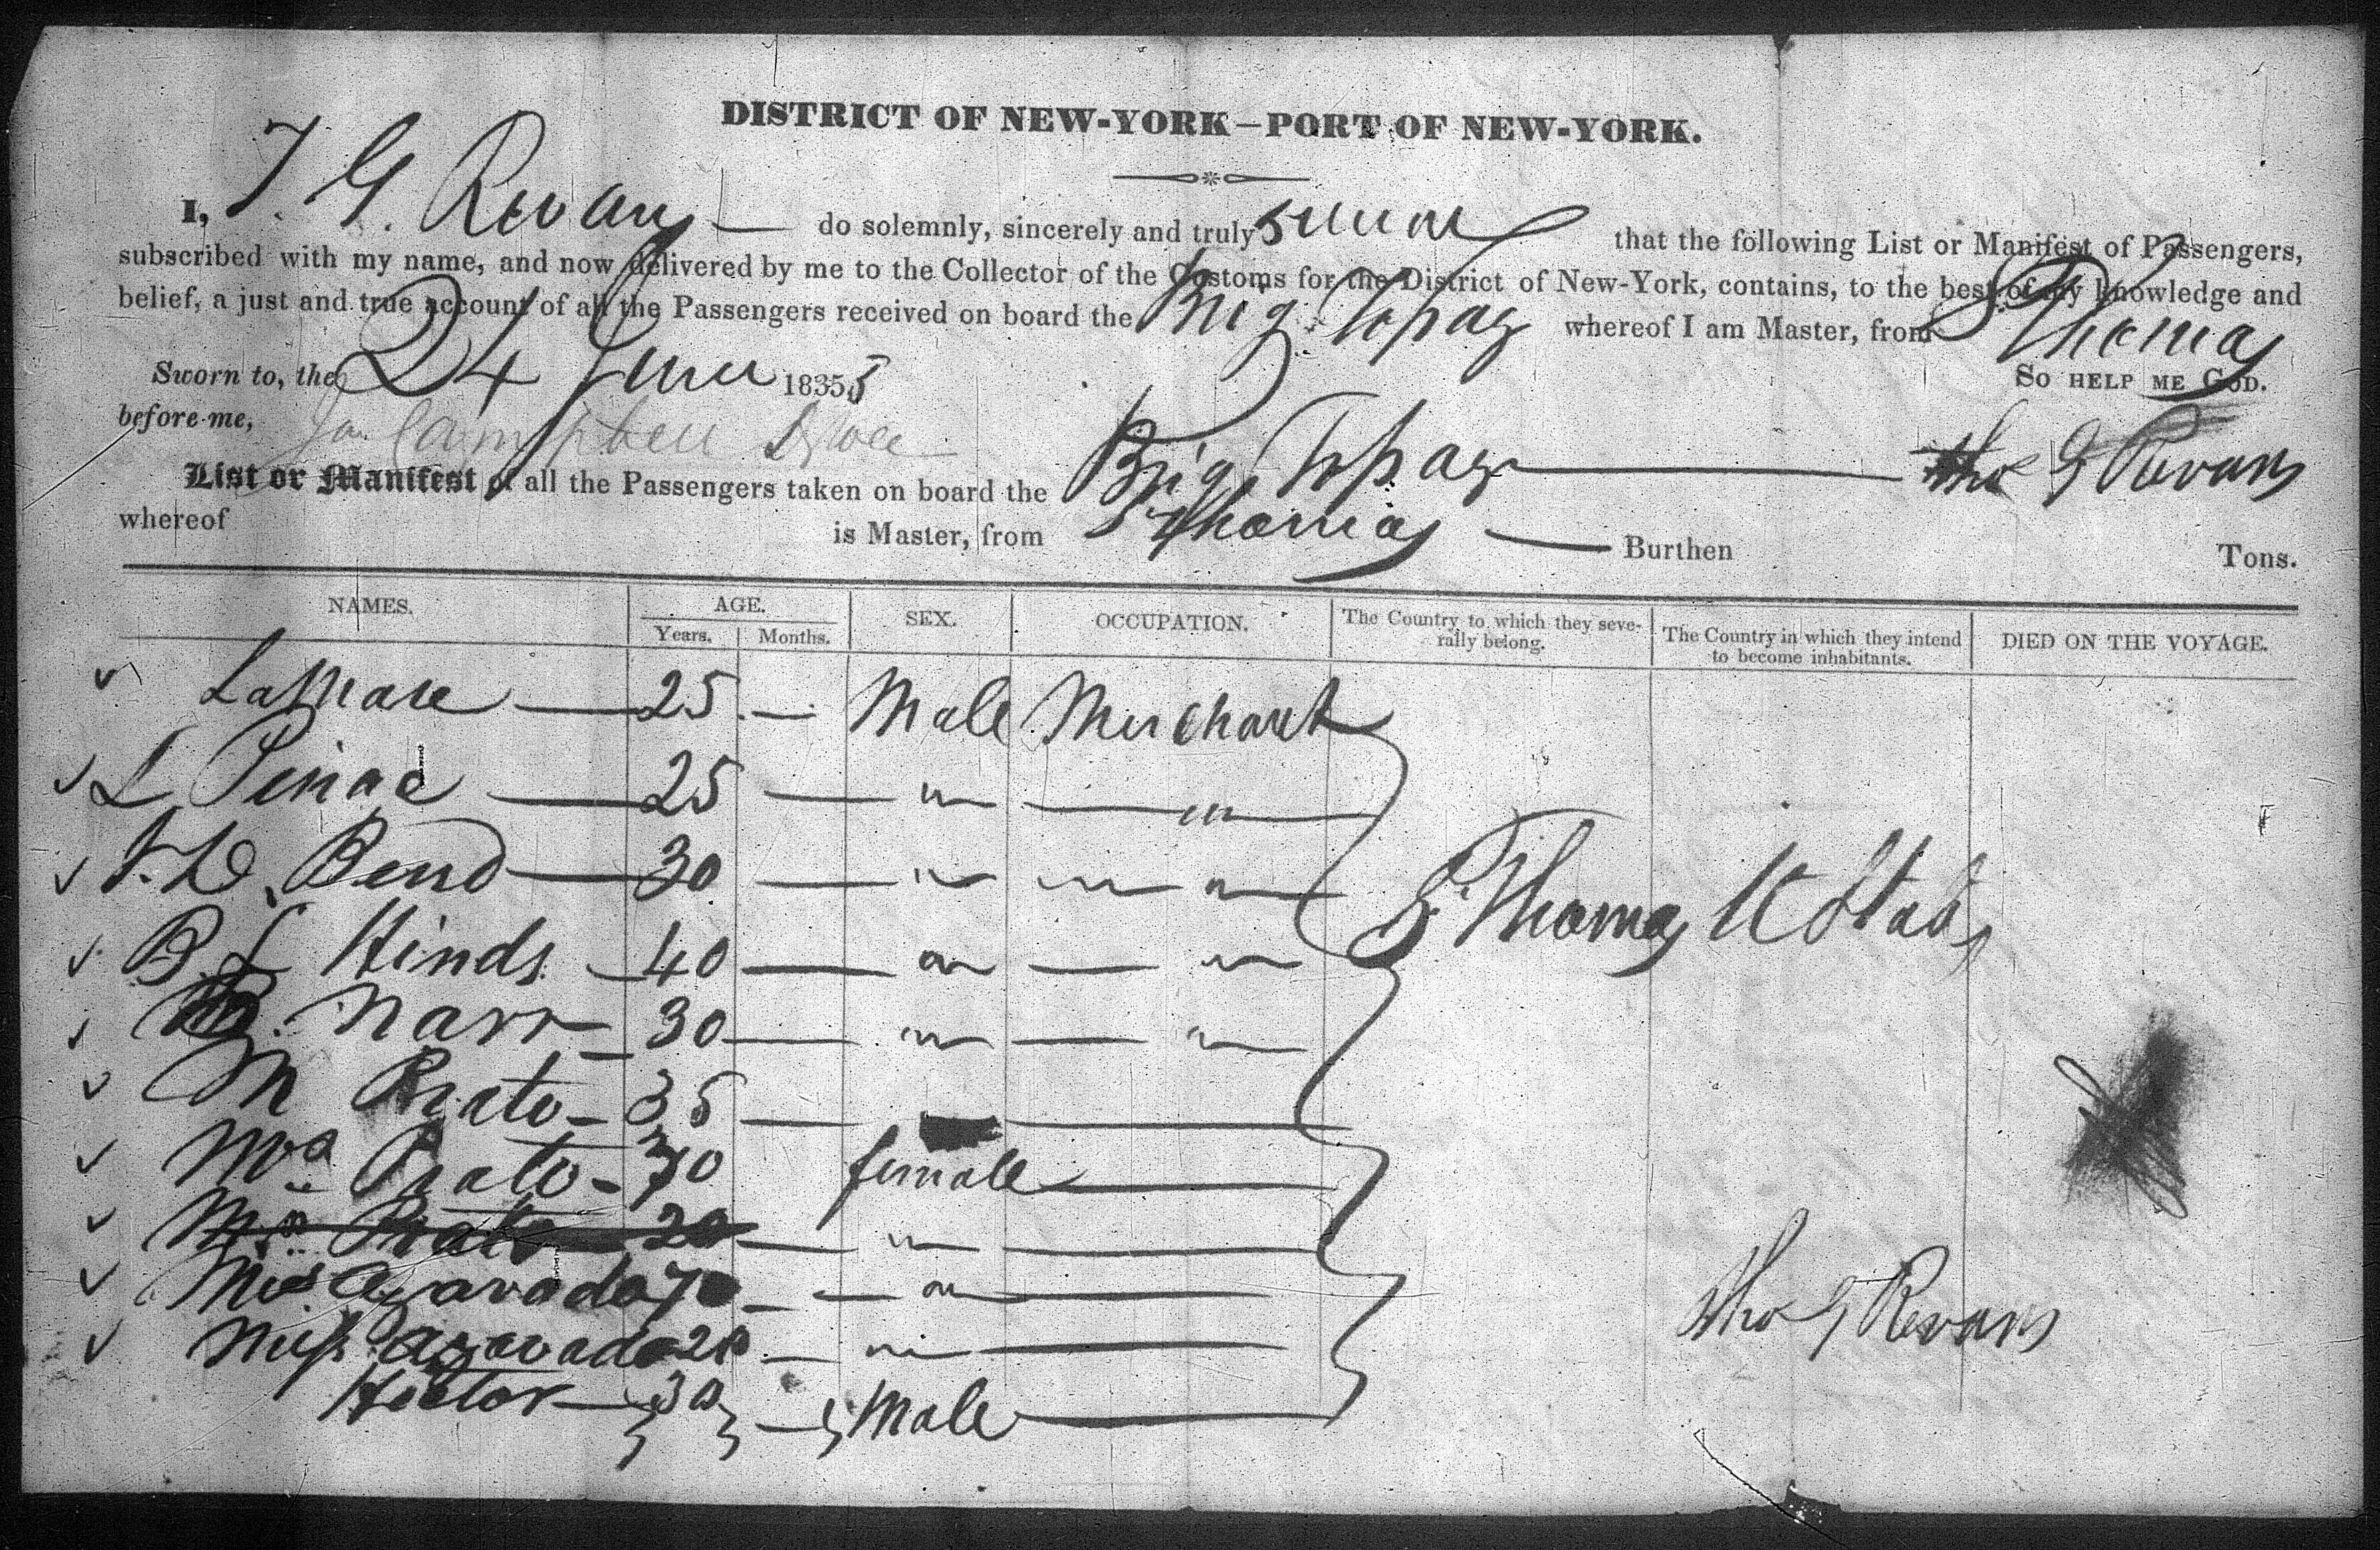 DISTRICT OF NEW-YORK—PORT OF NEW-YORK.
I, T. G. Revans do solemnly, sincerely and truly swear that the following List or Manifest of Passengers,
subscribed with my name, and now delivered by me to the Collector of the Customs for the District of New-York, contains, to the best of my knowledge and
belief, a just and true account of all the Passengers received on board the Brig Topaz whereof I am Master, from St Thomas
Sworn to, the 24 June 1835 So HELP ME GOD.
before me, Campbell Tho G Revans
List or Manifest of all the Passengers taken on board the Brig Topaz
whereof is Master, from St Thomas Burthen Tons.
NAMES. AGE. SEX. OCCUPATION. The Country to which they seve- The Country in which they intend DIED ON THE VOYAGE.
Years. Months. rally belong. to become inhabitants.
25 Male Merchant
L 25 "
30 " " "
B. L Hinds 40 " "
Narr 30 " "
M 35
Mrs 30 female
20 "
70 "
Miss 20 "
Hector 30 Male
St Thomas U States
Tho G Revans